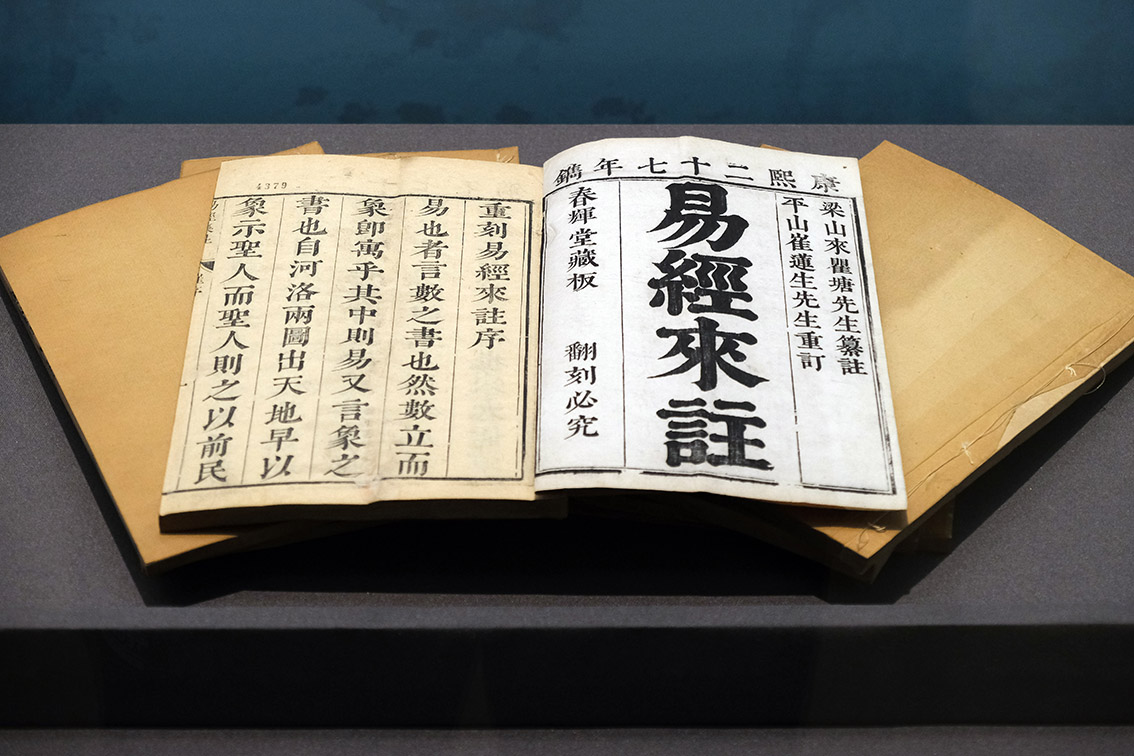 康熙二十七年鐫
梁山來瞿塘先生纂註
平山崔蓮生先生重訂
易經來註
春暉堂藏板　翻刻必究
重刻易經來註序
易也者言數之書也然數立而
象卽寓乎其中則易又言象之
書也自河洛兩圖出天地早以
象示聖人而聖人則之以前民
4379